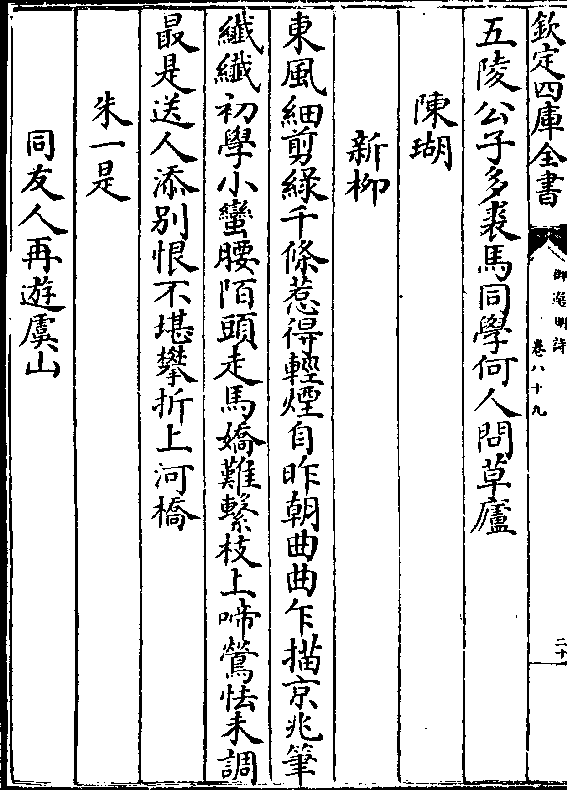 欽定四庫全書
御選明詩
卷八十九
二十
五陵公子多裘馬同學何人問草廬
陳瑚
新柳
東風細剪綠千條惹得輕煙自昨朝曲曲乍描京兆筆
纖纖初學小蠻腰陌頭走馬嬌難繫枝上啼鶯怯未調
最是送人添別恨不堪攀折上河橋
朱一是
同友人再遊虞山